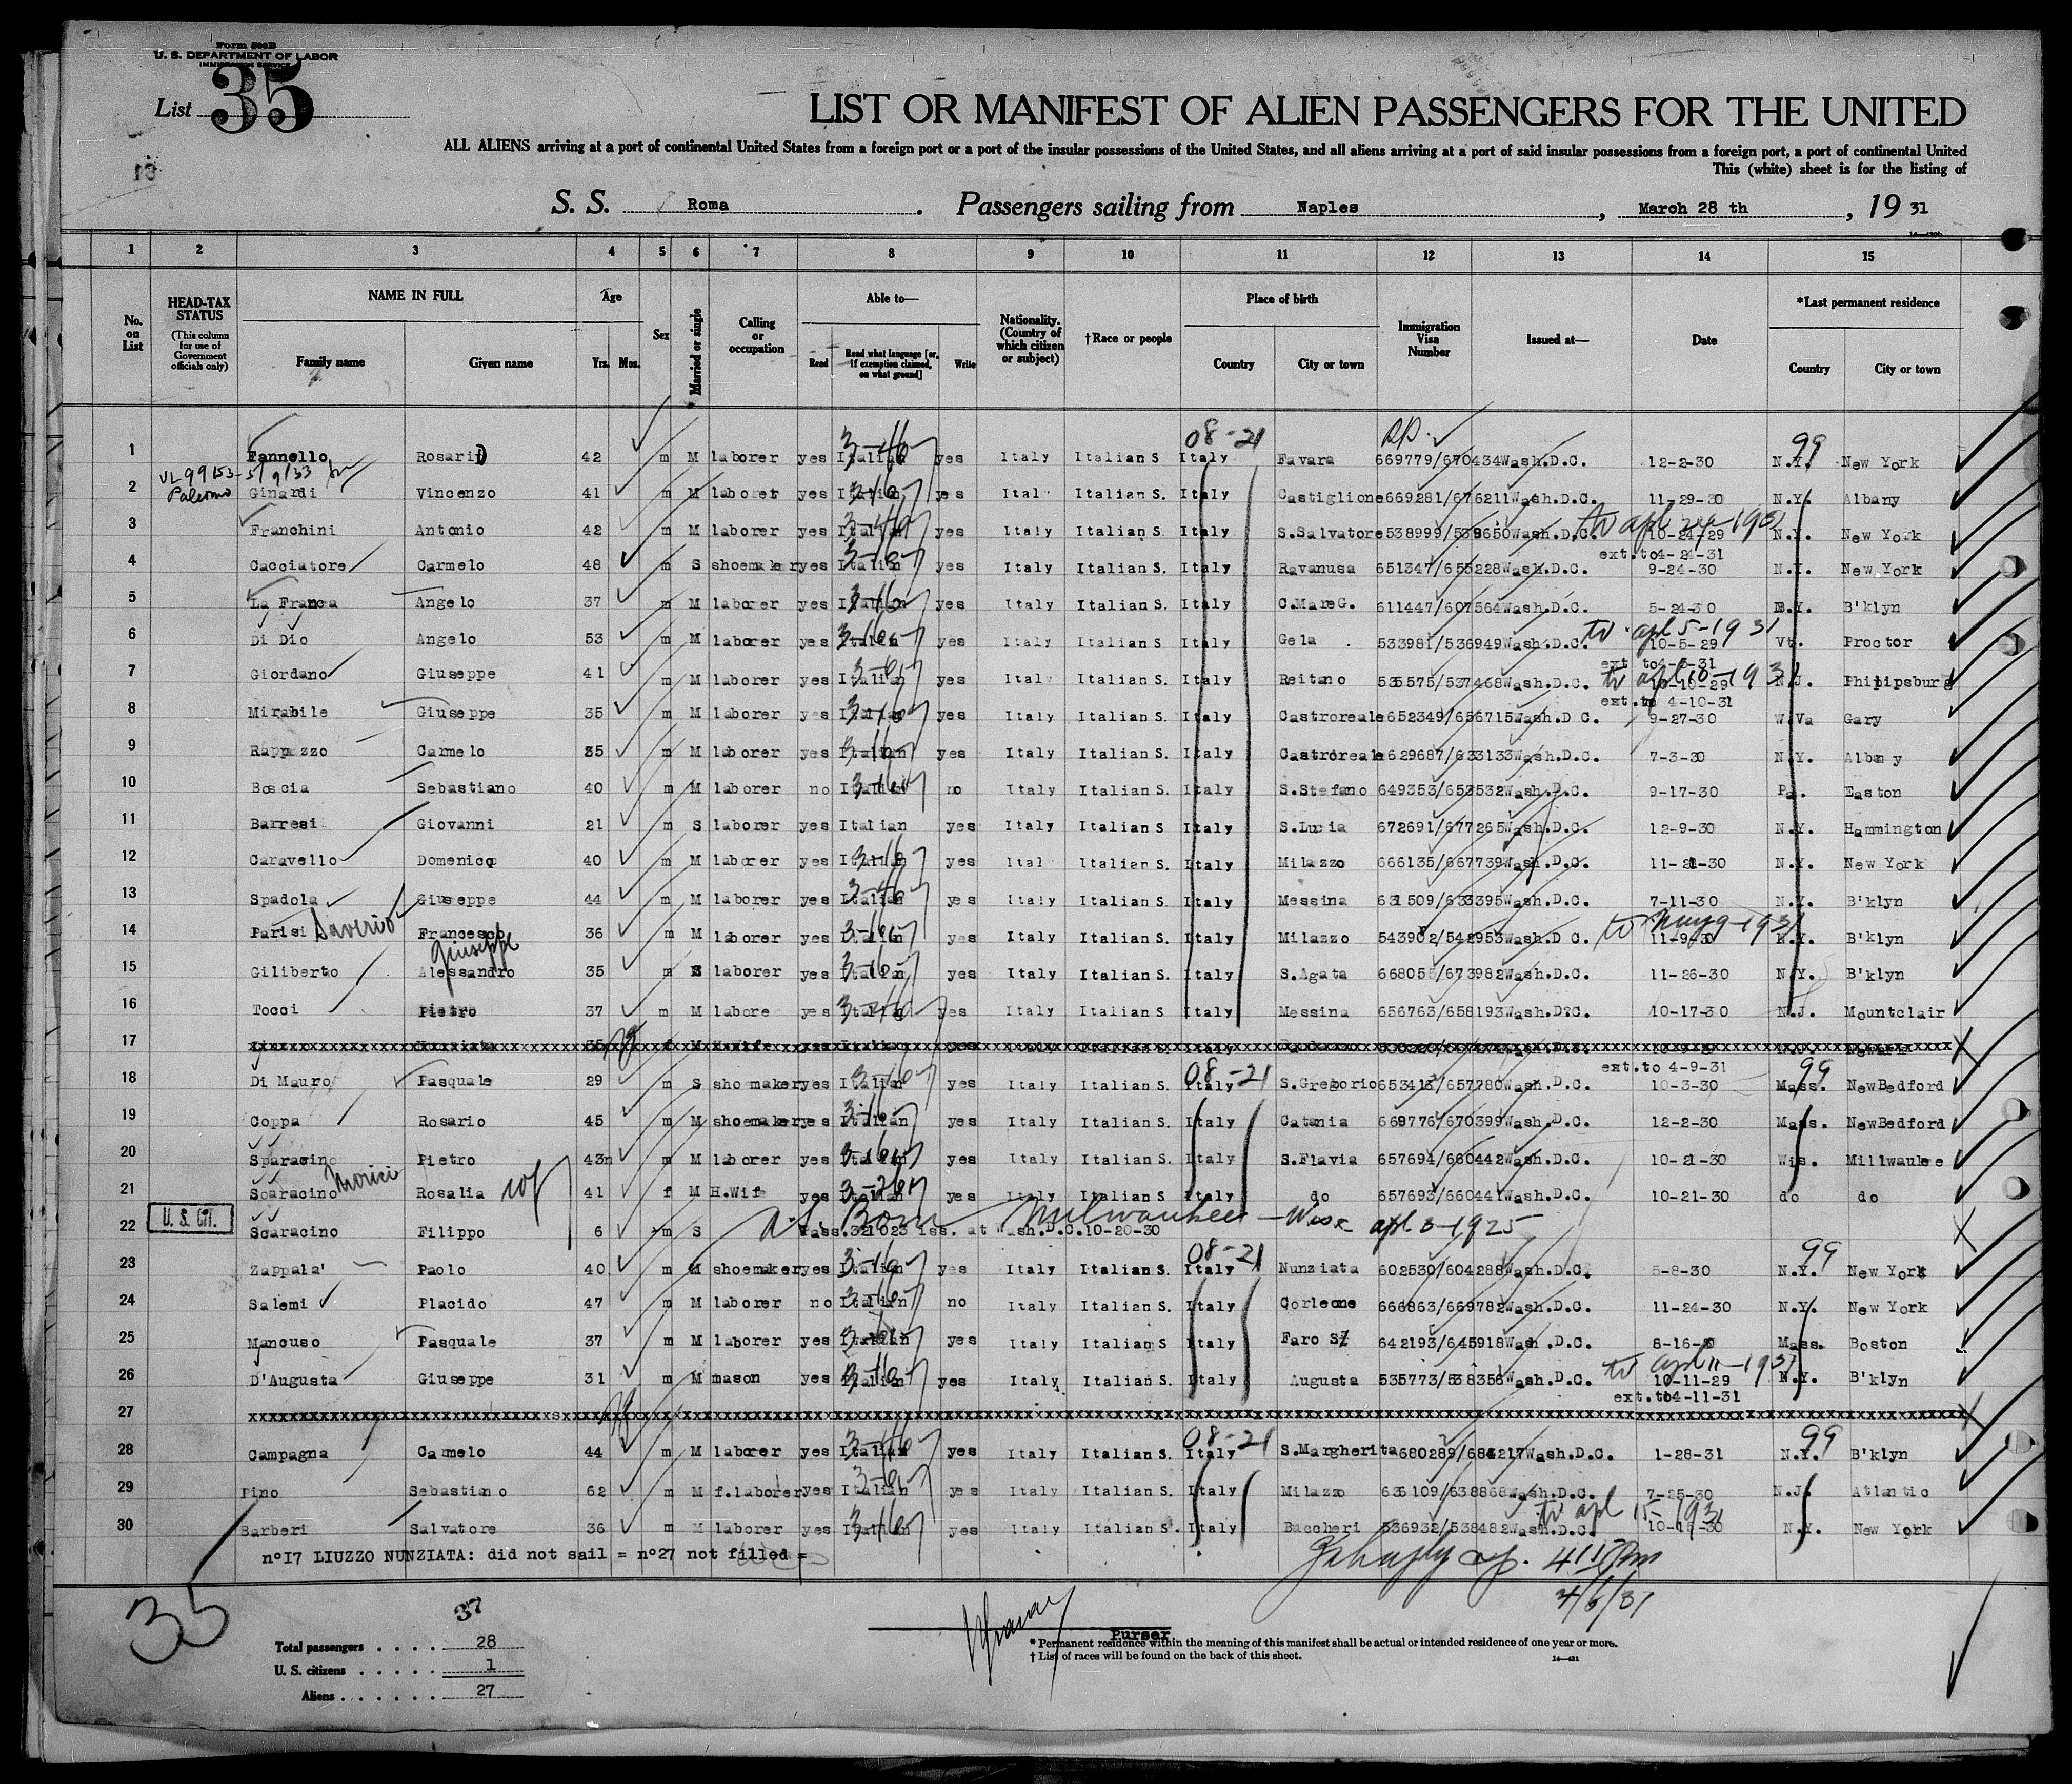 Form 500B
U. S. DEPARTMENT OF LABOR
IMMIGRATION SERVICE
List 35
LIST OR MANIFEST OF ALIEN PASSENGERS FOR THE UNITED
ALL ALIENS arriving at a port of continental United States from a foreign port or a port of the insular possessions of the United States, and all aliens arriving at a port of said insular possessions from a foreign port, a port of continental United
This (white) sheet is for the listing of
S. S. Roma. Passengers sailing from Naples, March 28 th, 19 31
1 2 3 4 5 6 7 8 9 10 11 12 13 14 15
No. on List
HEAD-TAX STATUS (This column for use of Government officials only)
NAME IN FULL Family name Given name
Age Yrs. Mos.
Sex
Married or single
Calling or occupation
Able to— Read Read what language [or, if exemption claimed, on what ground] Write
Nationality. (Country of which citizen or subject)
†Race or people
Place of birth Country City or town
Immigration Visa Number
Issued at—
Date
*Last permanent residence Country City or town
08-21 99
1 Fannello Rosario 42 m M laborer yes Italian yes Italy Italian S Italy Favara 669779/670434 Wash.D.C. 12-2-30 N.Y. New York
VL 99153 - 5/9/33
Palermo
2 Ginardi Vincenzo 41 m M laborer yes Italian yes Ital Italian S. Italy Castiglione 669281/676211 Wash.D.C. 11-29-30 N.Y. Albany
3 Franchini Antonio 42 m M laborer yes Italian yes Italy Italian S Italy S.Salvatore 538999/539650 Wash.D.C. 10-24-29 N.Y. New York
ext.to 4-24-31
4 Cacciatore Carmelo 48 m S shoemaker yes Italian yes Italy Italian S. Italy Ravanusa 651347/655228 Wash.D.C. 9-24-30 N.Y. New York
5 La Franca Angelo 37 m M laborer yes Italian yes Italy Italian S. Italy C.MareG. 611447/607564 Wash.D.C. 5-24-30 N.Y. B'klyn
to apl 5-1931
6 Di Dio Angelo 53 m M laborer yes Italian yes Italy Italian S Italy Gela 533981/536949 Wash.D.C. 10-5-29 Vt. Proctor
ext to 4-5-31
to apl 10-1931
7 Giordano Giuseppe 41 m M laborer yes Italian yes Italy Italian S Italy Reitano 535575/537468 Wash.D.C 10-10-29 N.J. Philipsburg
ext.to 4-10-31
8 Mirabile Giuseppe 35 m M laborer yes Italian yes Italy Italian S Italy Castroreale 652349/656715 Wash.D C. 9-27-30 W.Va Gary
9 Rappazzo Carmelo 35 m M laborer yes Italian yes Italy Italian S. Italy Castroreale 629687/633133 Wash.D.C. 7-3-30 N.Y. Albany
10 Boscia Sebastiano 40 m M laborer no Italian no Italy Italian S Italy S.Stefano 649353/653532 Wash.D.C. 9-17-30 Pa. Easton
11 Barresi Giovanni 21 m S laborer yes Italian yes Italy Italian S Italy S.Lucia 672691/677265 Wash.D.C. 12-9-30 N.Y. Hammington
12 Caravello Domenico 40 m M laborer yes Italian yes Ital Italian S Italy Milazzo 666135/667739 Wash.D.C. 11-21-30 N.Y. New York
13 Spadola Giuseppe 44 m M laborer yes Italian yes Italy Italian S. Italy Messina 631509/633395 Wash.D.C. 7-11-30 N.Y. B'klyn
14 Parisi Saverio Francesco 36 m M laborer yes Italian yes Italy Italian S. Italy Milazzo 543902/542953 Wash.D C. 11-9-30 N.Y. B'klyn
Giuseppe
15 Giliberto Alessandro 35 m S laborer yes Italian yes Italy Italian S. Italy S.Agata 668055/673982 Wash.D.C. 11-26-30 N.Y. B'klyn
16 Tocci Pietro 37 m M labore yes Italian yes Italy Italian S. Italy Messina 656763/658193 Wash.D.C. 10-17-30 N.J. Mountclair
17
ext.to 4-9-31
08-21 99
18 Di Mauro Pasquale 29 m S shomaker yes Italian yes Italy Italian S. Italy S.Gregorio 653413/657780 Wash.D.C. 10-3-30 Mass. NewBedford
19 Coppa Rosario 45 m M shoemaker yes Italian yes Italy Italian S. Italy Catania 669776/670399 Wash.D.C. 12-2-30 Mass. NewBedford
20 Sparacino Pietro 43 m M laborer yes Italian yes Italy Italian S. Italy S.Flavia 657694/660442 Wash.D.C. 10-21-30 Wis. Millwaukee
21 Scaracino Morici Rosalia 41 f M H.Wife yes Italian yes Italy Italian S Italy do 657693/660441 Wash.D.C. 10-21-30 do do
U. S. CIT.
22 Scaracino Filippo 6 m S Pass.321023 iss. at Wash.D.C.10-20-30 Born Milwaukee - Wisc apl 3-1925
08-21 99
23 Zappala' Paolo 40 m M shoemaker yes Italian yes Italy Italian S. Italy Nunziata 602530/604288 Wash.D.C. 5-8-30 N.Y. New York
24 Salemi Placido 47 m M laborer no Italian no Italy Italian S. Italy Corleone 666863/669782 Wash.D.C. 11-24-30 N.Y. New York
25 Mancuso Pasquale 37 m M laborer yes Italian yes Italy Italian S Italy Faro S 642193/645918 Wash.D.C. 8-16-30 Mass. Boston
to apl 11-1931
26 D'Augusta Giuseppe 31 m M mason yes Italian yes Italy Italian S. Italy Augusta 535773/538356 Wash.D.C. 10-11-29 N.Y. B'klyn
ext.to 4-11-31
27
08-21 99
28 Campagna Carmelo 44 m M laborer yes Italian yes Italy Italian S. Italy S.Margherita 680289/684217 Wash.D.C. 1-28-31 N.Y. B'klyn
29 Pino Sebastiano 62 m M f.laborer yes Italian yes Italy Italian S. Italy Milazzo 636109/638868 Wash.D.C. 7-25-30 N.J. Atlantic
to apl 15-1931
30 Barberi Salvatore 36 m M laborer yes Italian yes Italy Italian S. Italy Buccheri 536932/538482 Wash.D.C. N.Y. New York
n°I7 LIUZZO NUNZIATA: did not sail = n°27 not filled =
4/6/31
35
37
Total passengers . . . . 28
U. S. citizens . . . . . 1
Aliens . . . . . . 27
Purser
* Permanent residence within the meaning of this manifest shall be actual or intended residence of one year or more.
† List of races will be found on the back of this sheet.
14—431